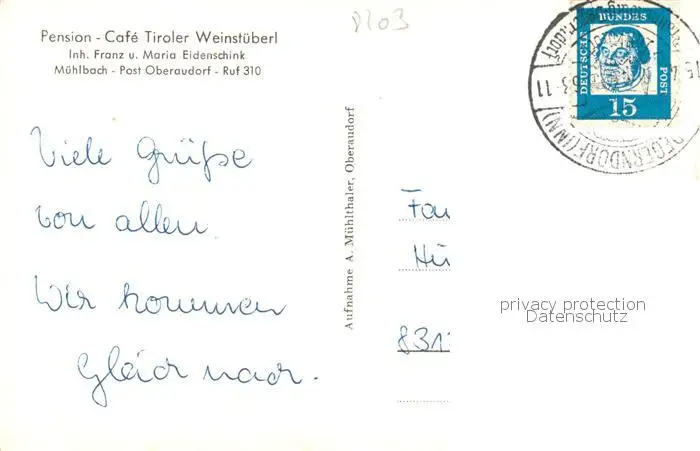 Pension - Café Tiroler Weinstüberl
Inh. Franz u. Maria Eidenschink
Mühlbach - Post Oberaudorf - Ruf 310
Viele Grüße
von allen.
Wir kommen
Gleich nach.
Aufnahme A. Mühlthaler, Oberaudorf
DEUTSCHE
BUNDES
POST
15
privacy protection
Datenschutz